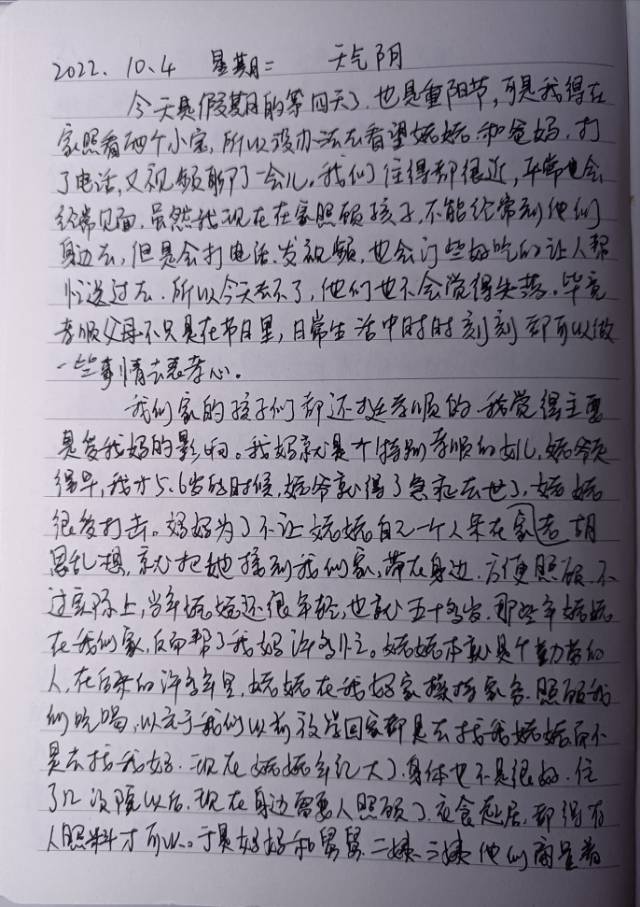 2022. 10.4 星期二 天气阴
今天是假期的第四天了.也是重阳节,可是我得在
家照看两个小宝,所以没办法去看望姥姥和爸妈.打
了电话,又视频聊了一会儿。我们住得都很近,平常也会
经常见面.虽然我现在在家照顾孩子,不能经常到他们
身边去,但是会打电话.发视频,也会订些好吃的让人帮
忙送过去.所以今天去不了,他们也不会觉得失落。毕竟
孝顺父母不只是在节日里,日常生活中时时刻刻都可以做
一些事情去表孝心。
我们家的孩子们都还挺孝顺的.我觉得主要
是受我妈的影响。我妈就是个特别孝顺的女儿,姥爷走
得早,我才5.6岁的时候,姥爷就得了急症去世了,姥姥
很受打击。妈妈为了不让姥姥自己一个人呆在家老胡
思乱想,就把她接到我们家,带在身边.方便照顾.不
过实际上,当年姥姥还很年轻,也就五十多岁.那些年姥姥
在我们家,反而帮了我妈许多忙。姥姥本就是个勤劳的
人,在后来的许多年里,姥姥在我妈家操持家务.照顾我
们吃喝,以至于我们以前放学回家都是去找我姥姥而不
是去找我妈.现在姥姥年纪大了.身体也不是很好.住
了几次院以后.现在身边需要人照顾了.衣食起居,都得有
人照料才可以.于是妈妈和舅舅.二姨.三姨他们商量着